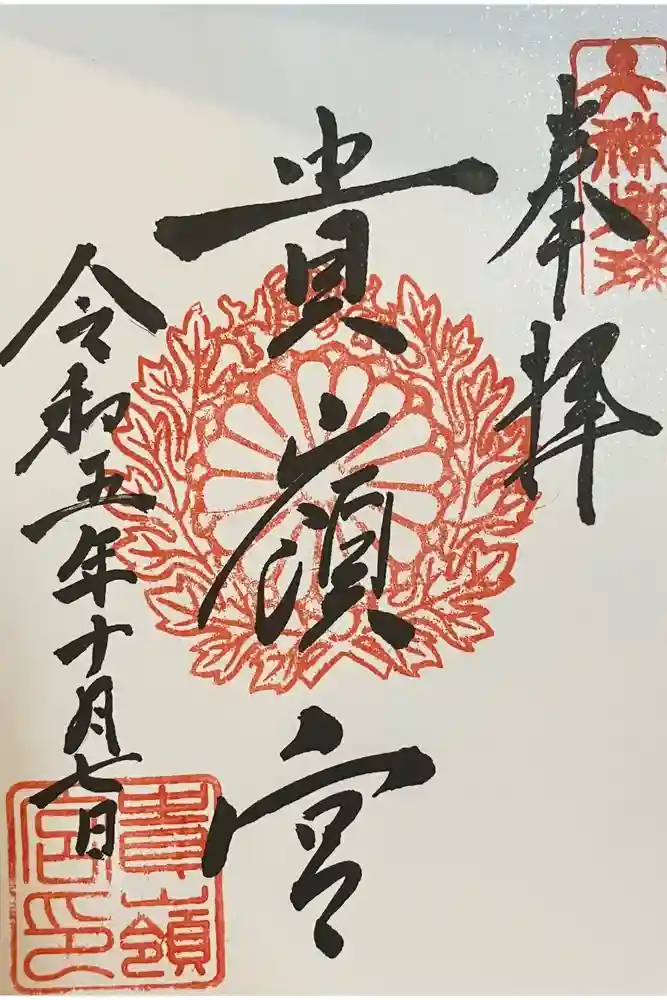 奉拝
貴嶺宮
令和五年十月七日
貴嶺宮印